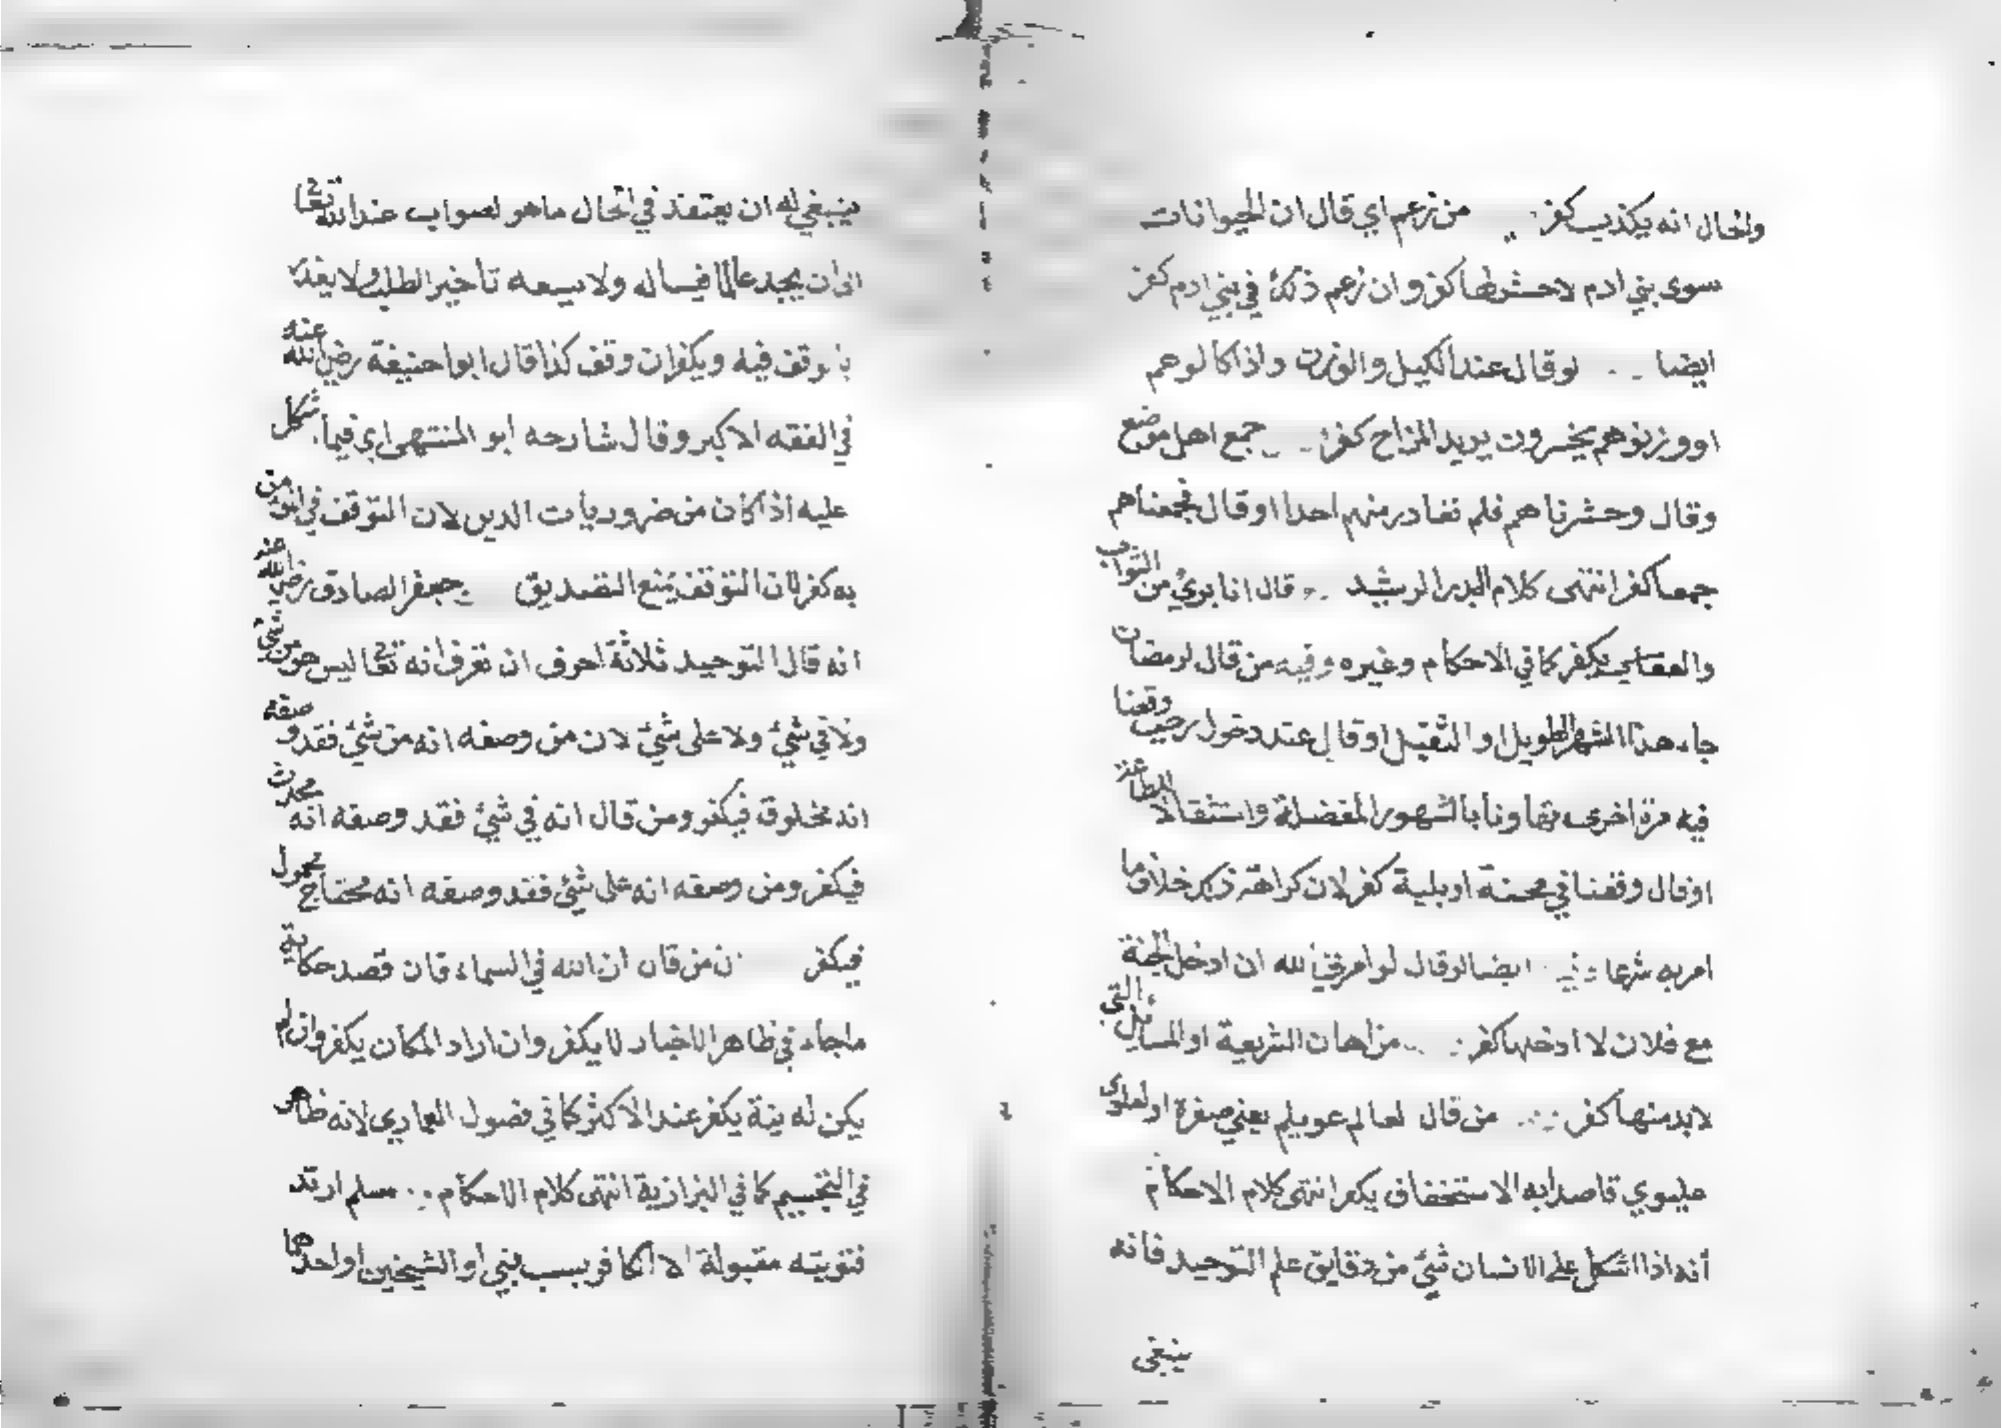 والحال انه يكذب كفر من زعم اي قال ان الحيوانات
سوى بني ادم لا حشر لها كفر وان زعم ذلك في بني ادم كفر
ايضا لو قال عند الكيل والوزن واذا كالوهم
او وزنوهم يخسرون يريد المزاح كفر جمع اهل موضع
وقال وحشرناهم فلم نغادر منهم احدا او قال فجمعناهم
جمعا كفر انتهى كلام البدر الرشيد قال انا بريء من الثواب
والعقاب يكفر كما في الاحكام وغيره وفيه من قال لرمضان
جاء هذا الشهر الطويل او الثقيل او قال عند دخول رجب وقعنا
فيه مرة اخرى تهاونا بالشهور المفضلة واستثقالا للطاعة
او قال وقعنا في محنة او بلية كفر لان كراهة ذلك خلاف ما
امر به شرعا ايضا لو قال لو امرني الله ان ادخل الجنة
مع فلان لا ادخلها كفر من اهان الشريعة او المسائل التي
لا بد منها كفر من قال لعالم عويلم يعني صغره او لعلوي
عليوي قاصدا به الاستخفاف يكفر انتهى كلام الاحكام
أنه اذا اشكل على الانسان شئ من دقايق علم التوحيد فانه
ينبغي
ينبغي له ان يعتقد في الحال ما هو لصواب عند الله تعالى
الى ان يجد عالما فيساله ولا يسعه تأخير الطلب ولا يعذر
بالوقف فيه ويكفر ان وقف كذا قال ابو حنيفة رضي الله عنه
في الفقه الاكبر وقال شارحه ابو المنتهى اي فيما شكل
عليه اذا كان من ضروريات الدين لان التوقف في المؤمن
به كفر لان التوقف يمنع التصديق جعفر الصادق رضي الله عنه
انه قال التوحيد ثلاثة احرف ان تعرف انه تعالى ليس هو من شئ
ولا في شئ ولا على شئ لان من وصفه انه من شئ فقد وصفه
انه مخلوق فيكفر ومن قال انه في شئ فقد وصفه انه محدث
فيكفر ومن وصفه انه على شئ فقد وصفه انه محتاج محمول
فيكفر من قال ان الله في السماء فان قصد حكاية
ما جاء في ظاهر الاخبار لا يكفر وان اراد المكان يكفر وان لم
يكن له نية يكفر عند الاكثر كما في فصول العمادي لانه ظاهر
في التجسيم كما في البزازية انتهى كلام الاحكام مسلم ارتد
فتوبته مقبولة الا الكافر بسب نبي او الشيخين او احدهما